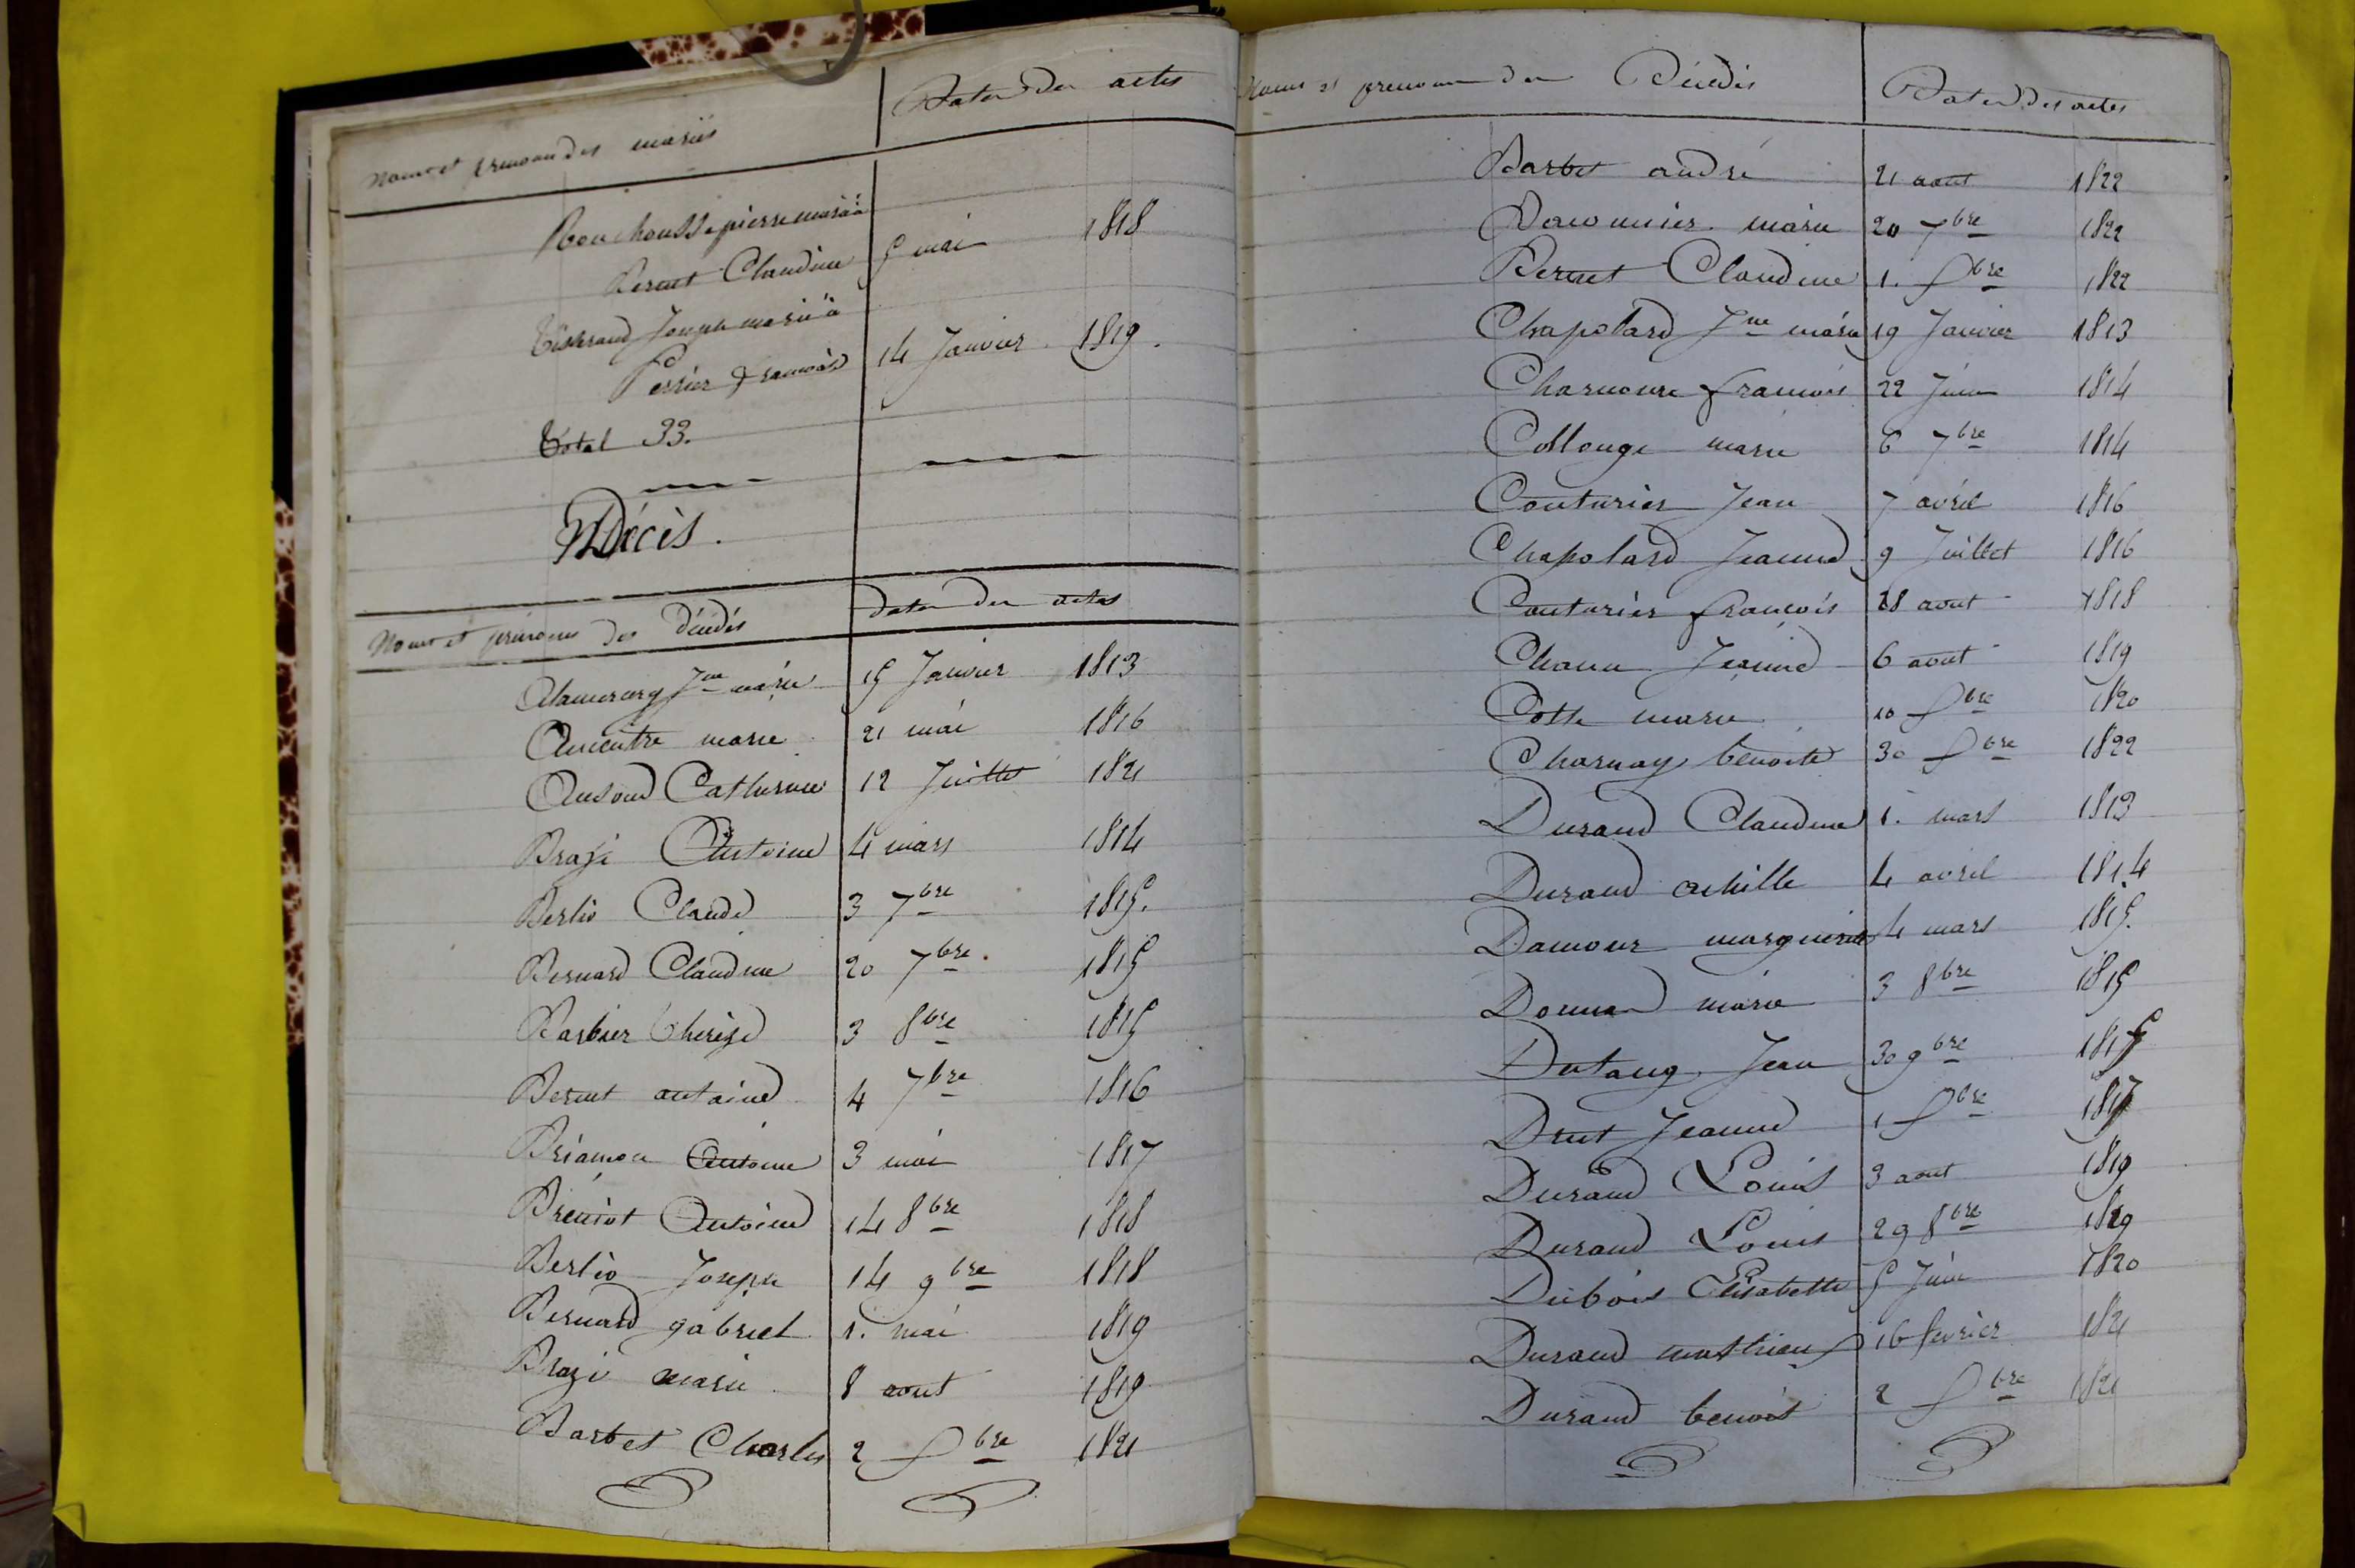 Noms et prenoms des mariés
Dates des actes
Bouchousse pierre marié à
Bernet Claudine 5 mai 1818
Tisserand Joseph marié à
Perrier françois 14 Janvier 1819.
Total 33.
Décès.
Noms et prénoms des Décédés
dates des actes
Jne marie 15 Janvier 1813
marie 21 mai 1816
Catherine 12 Juillet 1821
Brazi Antoine 4 mars 1814
Berlio Claude 3 7bre 1815.
Bernard Claudine 20 7bre. 1815
Barbier Therèze 3 8bre 1815
Bernet antoine 4 7bre 1816
Briamon Antoine 3 mai 1817
Breniot Antoine 14 8bre 1818
Berlio Joseph 14 9bre 1818
Bernard gabriel 1. mai 1819
Brazi marie 8 aout 1819
Barbet Charles 2 Xbre 1821
Noms et prenoms des Décédés
Dates des actes
Barbet andré 21 aout 1822
marie 20 7bre 1822
Bernet Claudine 1. Xbre 1822
Chapolard Jne marie 19 Janvier 1813
françois 22 Juin 1814
Collonge marie 6 7bre 1814
Couturier Jean 7 avril 1816
Chapolard Jeanne 9 Juillet 1816
Couturier françois 18 aout 1818
Jeanne 6 aout 1819
marie 10 Xbre 1820
Charnay benoite 30 Xbre 1822
Durand Claudine 1. mars 1813
Durand achille 4 avril 1814
Damour marguerite 4 mars 1815.
marie 3 8bre 1815
Dutang Jean 30 9bre 1815
Drut Jeanne 1 Xbre 1817
Durand Louis 3 aout 1819
Durand Louis 29 8bre 1819
Dubois Elisabette 5 Juin 1820
Durand mathieu 16 fevrier 1821
Durand benoit 2 Xbre 1821